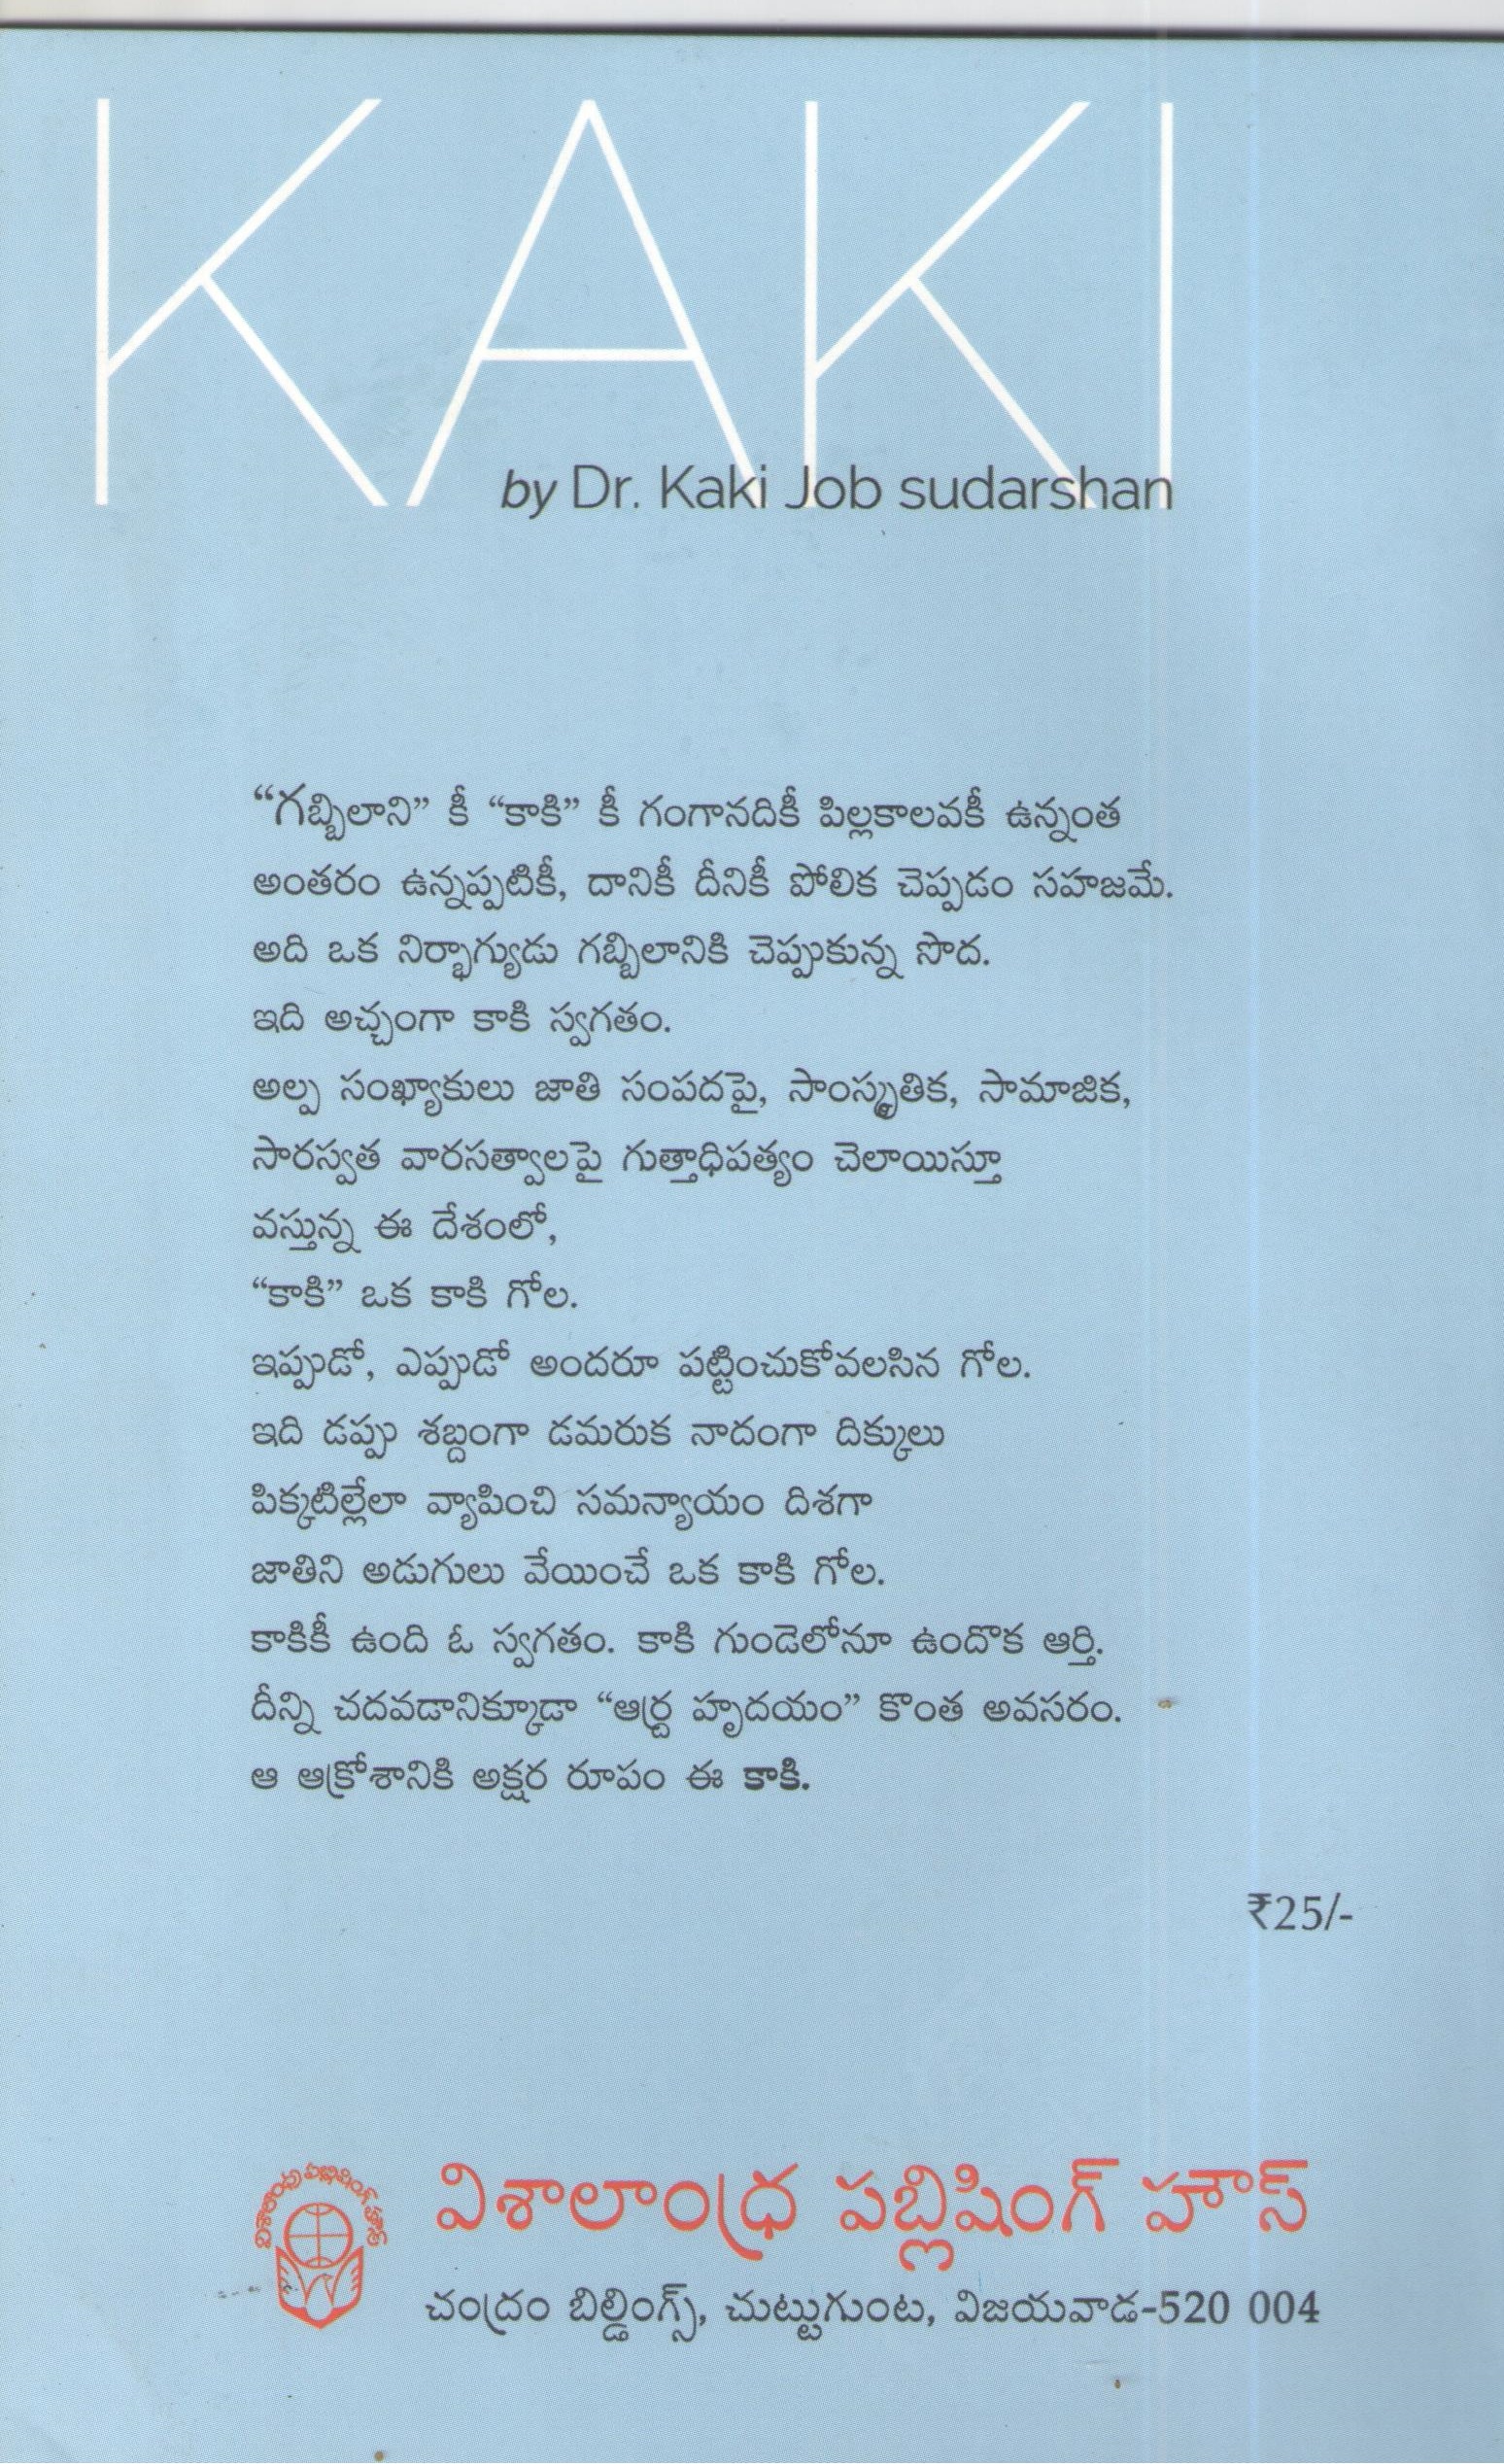 KAKI
by Dr. Kaki Job sudarshan
“గబ్బిలాని” కీ “కాకి” కీ గంగానదికీ పిల్లకాలవకీ ఉన్నంత
అంతరం ఉన్నప్పటికీ, దానికీ దీనికీ పోలిక చెప్పడం సహజమే.
అది ఒక నిర్భాగ్యుడు గబ్బిలానికి చెప్పుకున్న సొద.
ఇది అచ్చంగా కాకి స్వగతం.
అల్ప సంఖ్యాకులు జాతి సంపదపై, సాంస్కృతిక, సామాజిక,
సారస్వత వారసత్వాలపై గుత్తాధిపత్యం చెలాయిస్తూ
వస్తున్న ఈ దేశంలో,
“కాకి” ఒక కాకి గోల.
ఇప్పుడో, ఎప్పుడో అందరూ పట్టించుకోవలసిన గోల.
ఇది డప్పు శబ్దంగా డమరుక నాదంగా దిక్కులు
పిక్కటిల్లేలా వ్యాపించి సమన్యాయం దిశగా
జాతిని అడుగులు వేయించే ఒక కాకి గోల.
కాకికీ ఉంది ఓ స్వగతం. కాకి గుండెలోనూ ఉందొక ఆర్తి.
దీన్ని చదవడానిక్కూడా “ఆర్ద్ర హృదయం” కొంత అవసరం.
ఆ ఆక్రోశానికి అక్షర రూపం ఈ కాకి.
₹25/-
విశాలాంధ్ర పబ్లిషింగ్ హౌస్
విశాలాంధ్ర పబ్లిషింగ్ హౌస్
చంద్రం బిల్డింగ్స్, చుట్టుగుంట, విజయవాడ-520 004